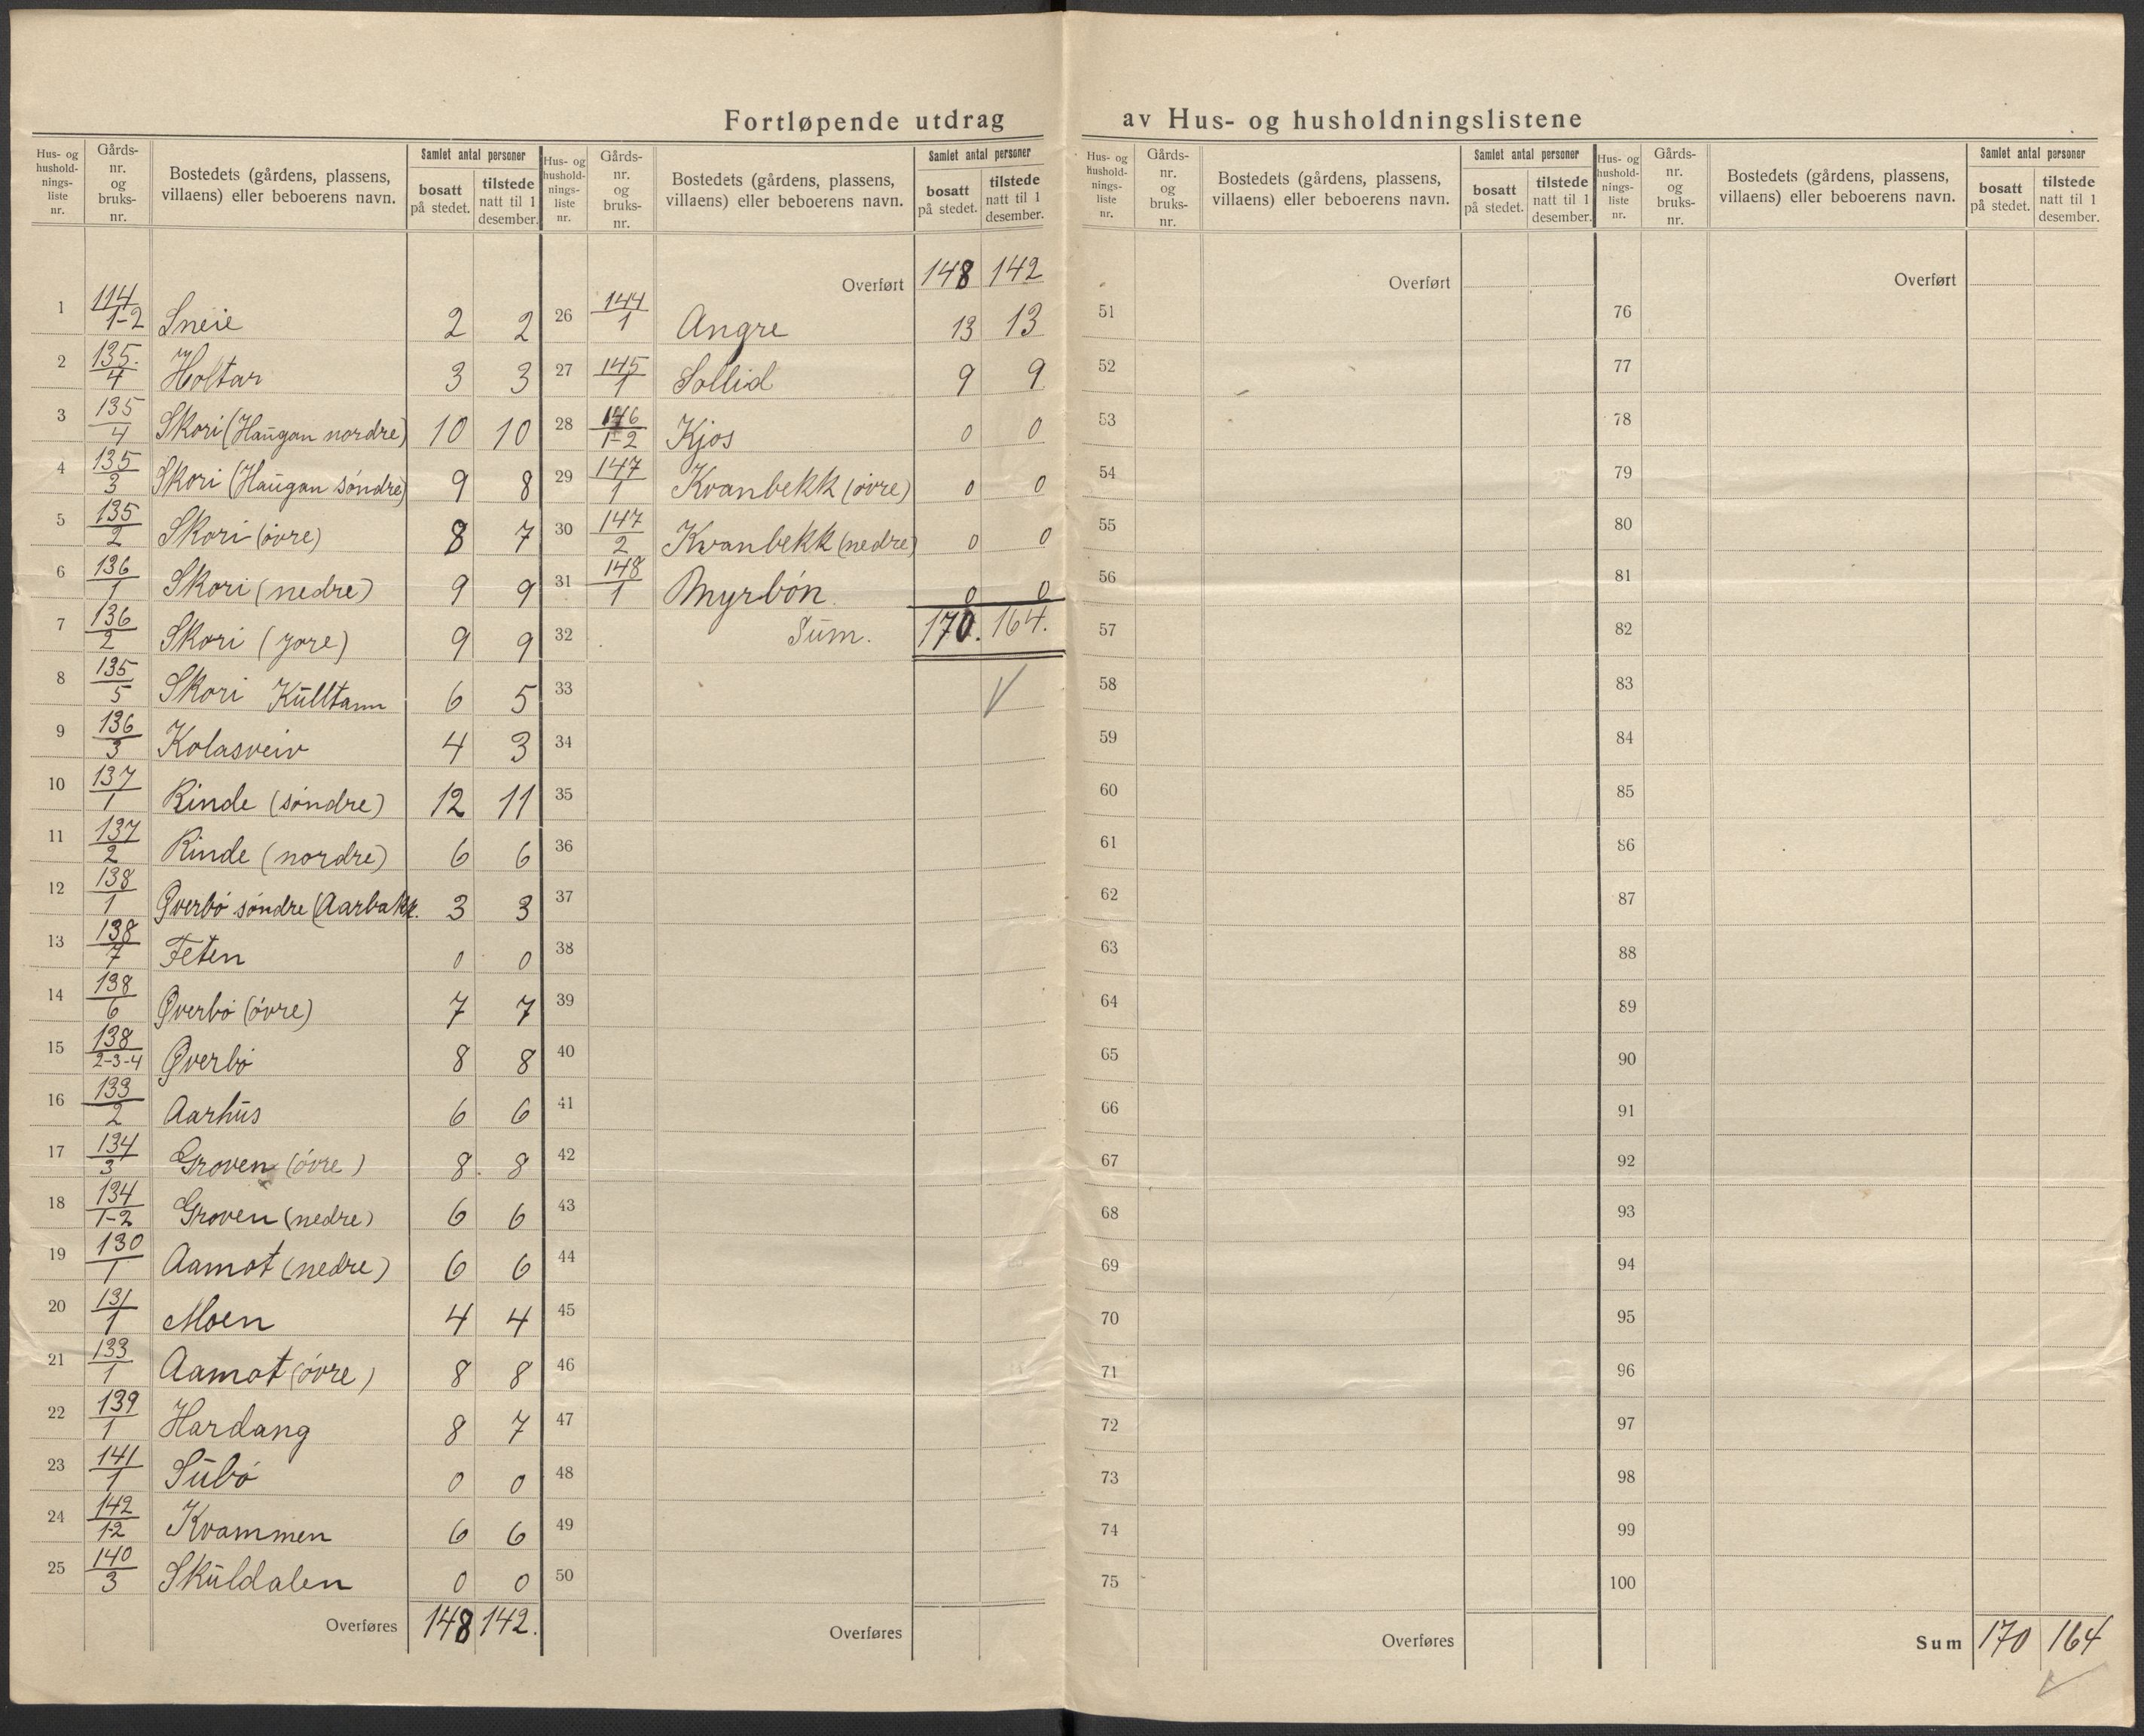 Fortløpende utdrag av Hus- og husholdningslistene
Hus- og husholdnings-liste nr. | Gårds-nr. og bruks-nr. | Bostedets (gårdens, plassens, villaens) eller beboerens navn. | Samlet antal personer | bosatt på stedet. | tilstede natt til 1 desember.
1 114/1-2 Sneie 2 2
2 135/4 Holtar 3 3
3 135/4 Skori (Haugan nordre) 10 10
4 135/3 Skori (Haugan søndre) 9 8
5 135/2 Skori (øvre) 8 7
6 136/1 Skori (nedre) 9 9
7 136/2 Skori (jore) 9 9
8 135/5 Skori Kulltann 6 5
9 136/3 Kolasveiv 4 3
10 137/1 Rinde (søndre) 12 11
11 137/2 Rinde (nordre) 6 6
12 138/1 Øverbø søndre (Aarbakk. 3 3
13 138/7 Feten 0 0
14 138/6 Øverbø (øvre) 7 7
15 138/2-3-4 Øverbø 8 8
16 133/2 Aarhus 6 6
17 134/3 Groven (øvre) 8 8
18 134/1-2 Groven (nedre) 6 6
19 130/1 Aamot (nedre) 6 6
20 131/1 Moen 4 4
21 133/1 Aamot (øvre) 8 8
22 139/1 Hardang 8 7
23 141/1 Subø 0 0
24 142/1-2 Kvammen 6 6
25 140/3 Skuldalen 0 0
Overføres 148 142.
Hus- og husholdnings-liste nr. | Gårds-nr. og bruks-nr. | Bostedets (gårdens, plassens, villaens) eller beboerens navn. | Samlet antal personer | bosatt på stedet. | tilstede natt til 1 desember.
Overført 148 142
26 144/1 Angre 13 13
27 145/1 Sollid 9 9
28 146/1-2 Kjos 0 0
29 147/1 Kvanbekk (øvre) 0 0
30 147/2 Kvanbekk (nedre) 0 0
31 148/1 Myrbøn. 0 0
32 Sum. 170. 164.
33
34
35
36
37
38
39
40
41
42
43
44
45
46
47
48
49
50
Overføres
Hus- og husholdnings-liste nr. | Gårds-nr. og bruks-nr. | Bostedets (gårdens, plassens, villaens) eller beboerens navn. | Samlet antal personer | bosatt på stedet. | tilstede natt til 1 desember.
Overført
51
52
53
54
55
56
57
58
59
60
61
62
63
64
65
66
67
68
69
70
71
72
73
74
75
Overføres
Hus- og husholdnings-liste nr. | Gårds-nr. og bruks-nr. | Bostedets (gårdens, plassens, villaens) eller beboerens navn. | Samlet antal personer | bosatt på stedet. | tilstede natt til 1 desember.
Overført
76
77
78
79
80
81
82
83
84
85
86
87
88
89
90
91
92
93
94
95
96
97
98
99
100
Sum 170 164